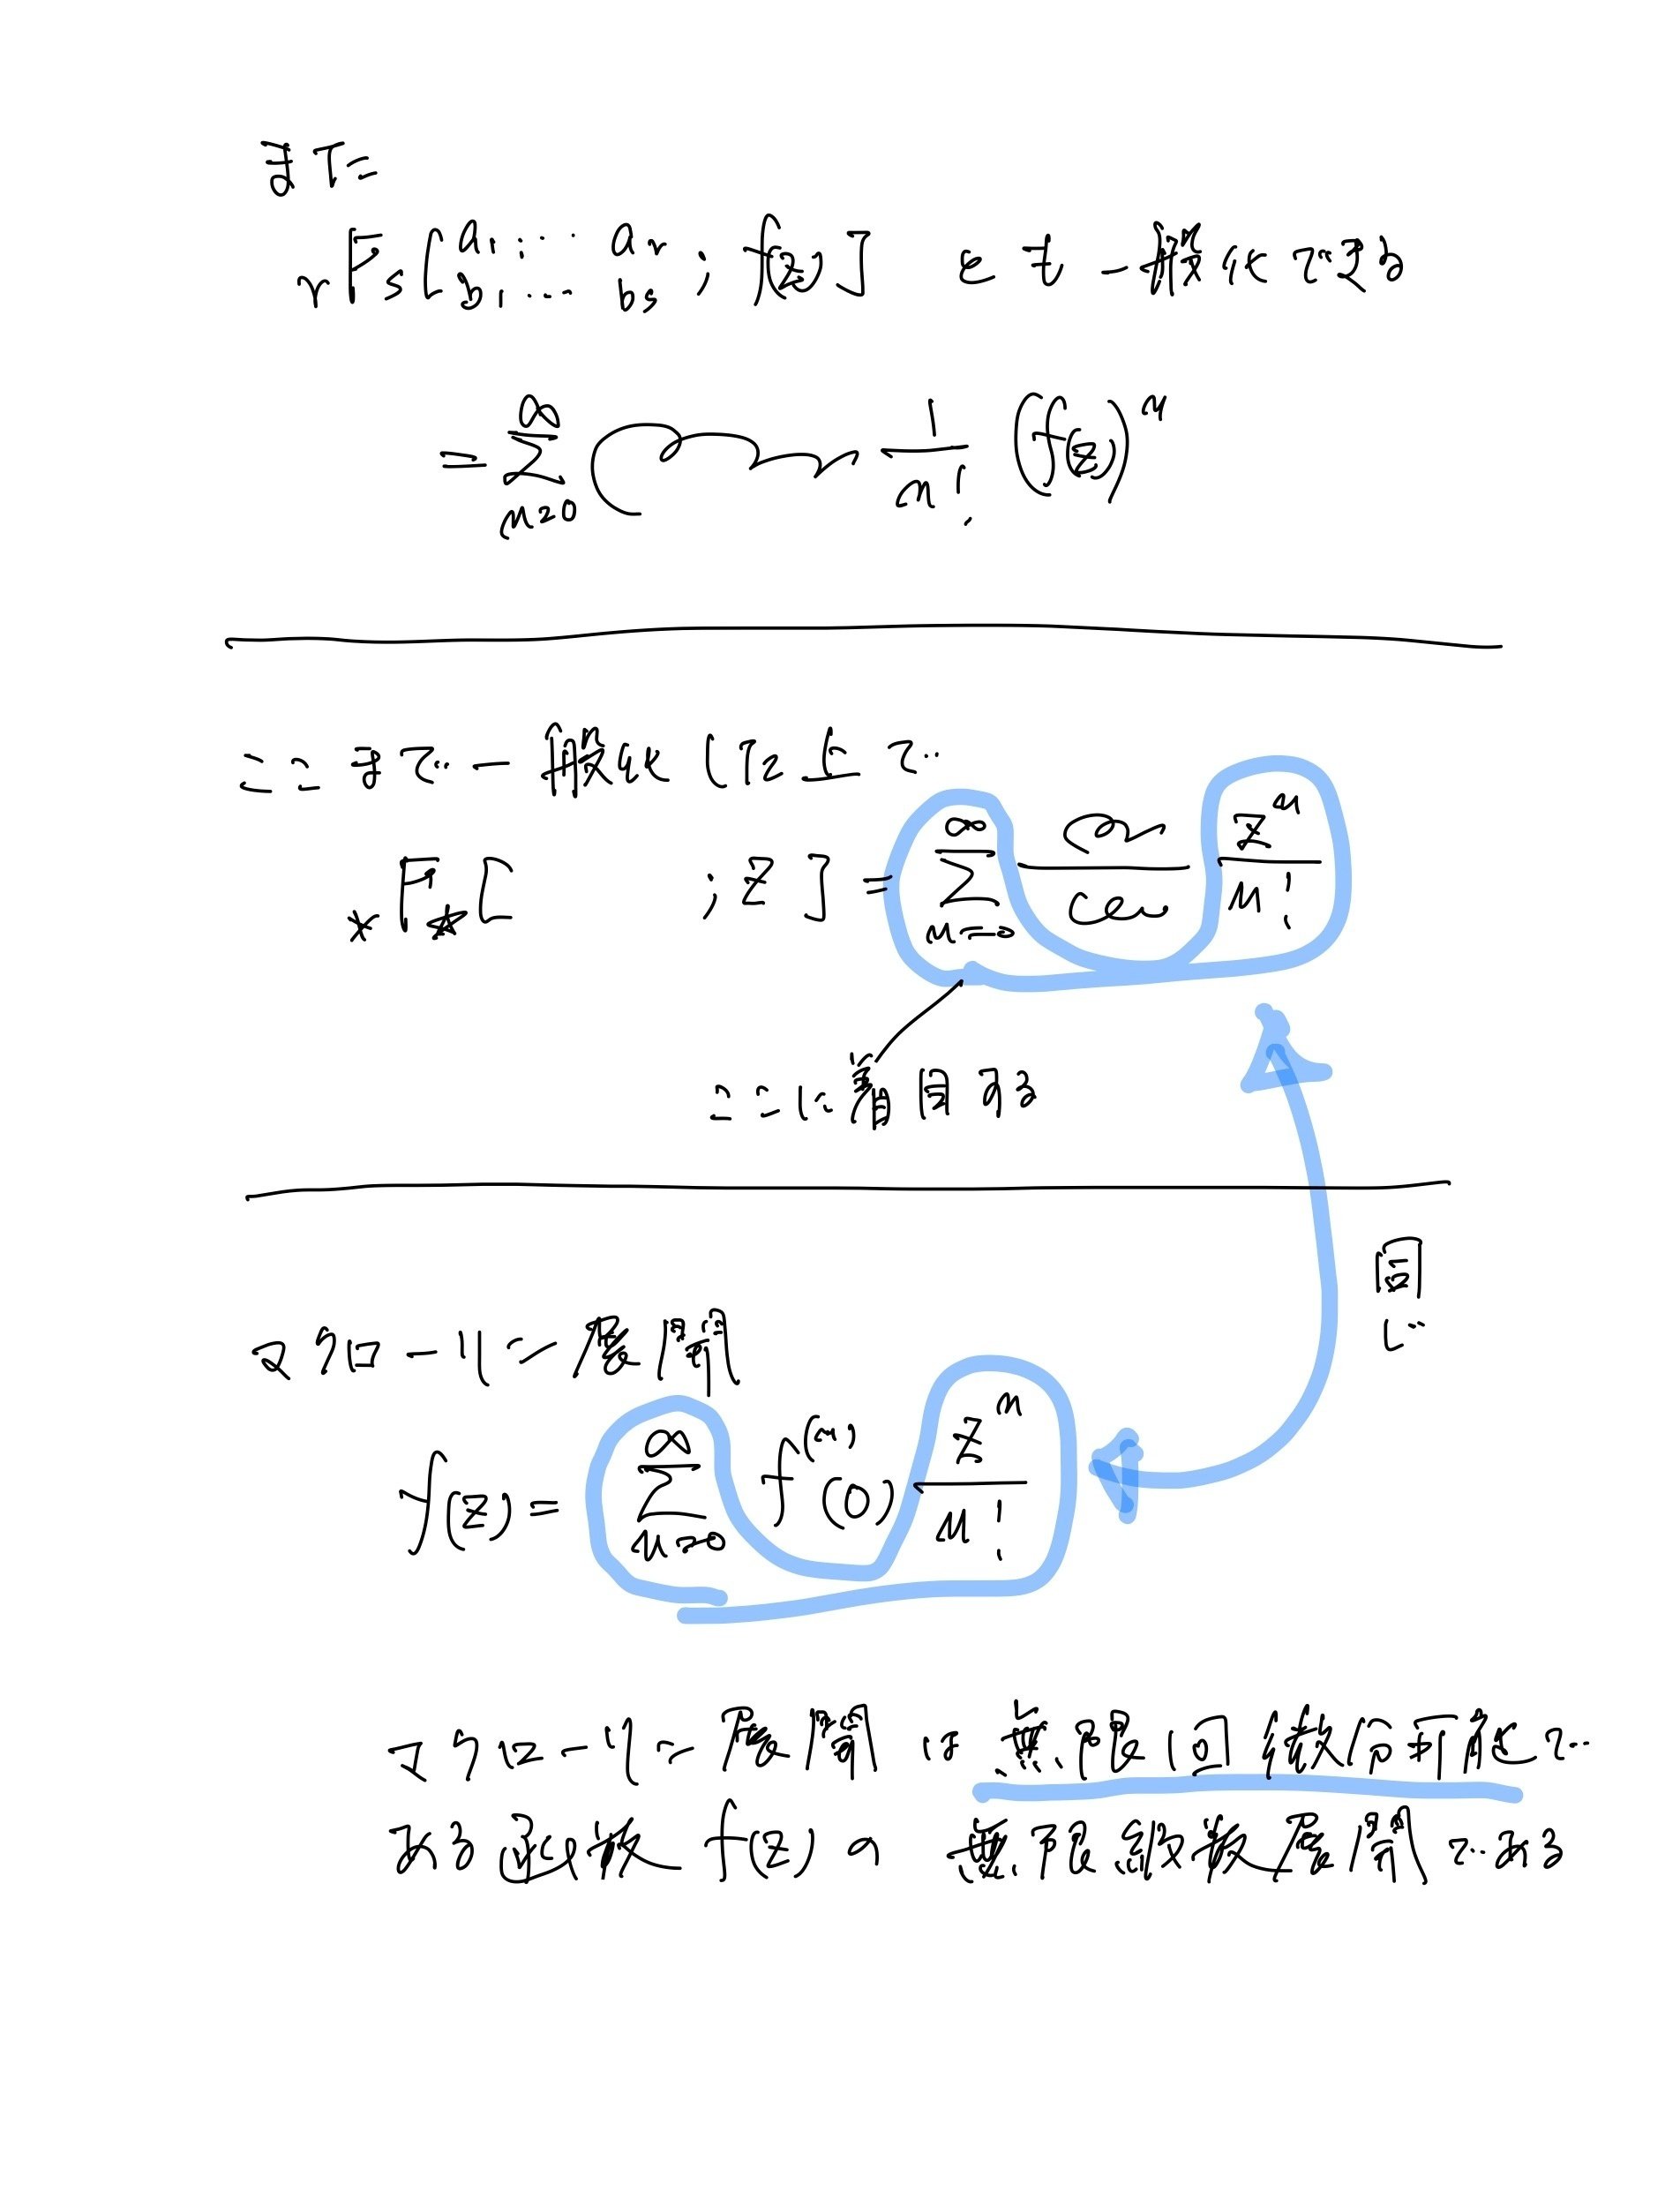 また
rFs[a1, … ar
b1, … bs ; f(z)] とも一般化できる
= ∞Σn=0 1/n! (f(z))^n
ここまで一般化した上で
*F*[ ; z] = ∞Σn=0 z^n/n!
ここに着目する
同じ
マクローリン展開
f(z) = ∞Σn=0 f^(n)(0) z^n/n!
マクローリン展開は無限回微分可能で
ある函数 f(z) の無限級数展開である